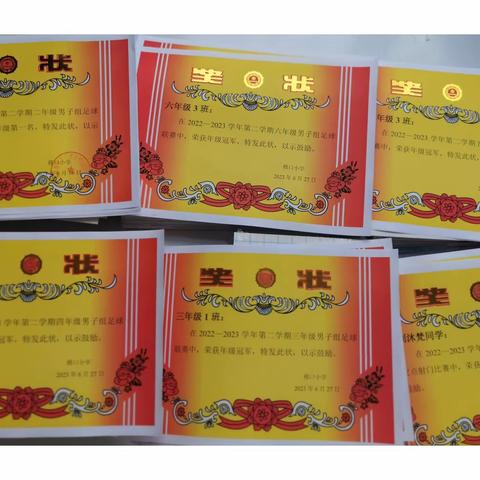 状
年第二学期二年级男子组足球
年级第一名，特发此状，以示
横口小学
奖 状
六年级 3 班：
在 2022—2023 学年第二学期六年级男子组足球
联赛中，荣获年级冠军，特发此状，以示鼓励。
横口小学
2023 年 6 月 27 日
奖
年级 3 班：
在 2022—2023 学年第二学期
联赛中，荣获年级冠军，特发此
状
学年第二学期四年级男子组足球
冠军，特发此状，以示鼓励。
横口小学
2023 年 6 月 27 日
奖 状
三年级 1 班：
在 2022—2023 学年第二学期三年级男子组足球
联赛中，荣获年级冠军，特发此状，以示鼓励。
横口小学
2023 年 6 月 27 日
奖
沐梵同学：
点射门比赛中，荣获